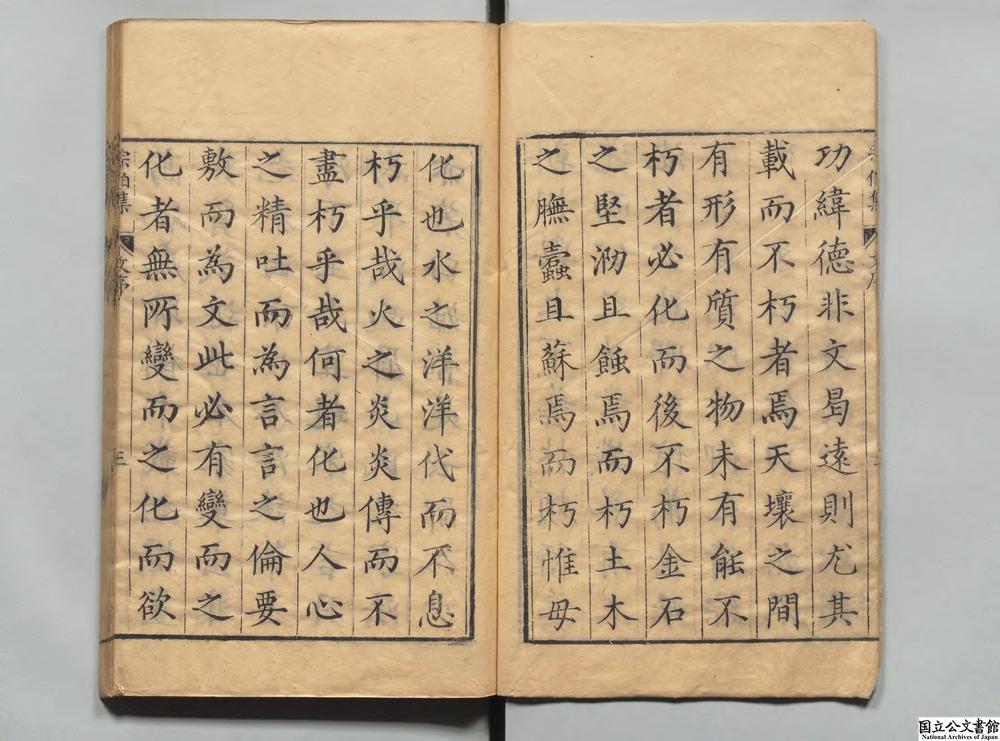 功緯德非文曷遠則尤其
載而不朽者焉天壤之間
有形有質之物未有能不
朽者必化而後不朽金石
之堅泐且蝕焉而朽土木
之膴蠹且蘇焉而朽惟毋
化也水之洋洋代而不息
朽乎哉火之炎炎傳而不
盡朽乎哉何者化也人心
之精吐而為言言之倫要
敷而為文此必有變而之
化者無所變而之化而欲
宗伯集 文序 三
国立公文書館
National Archives of Japan